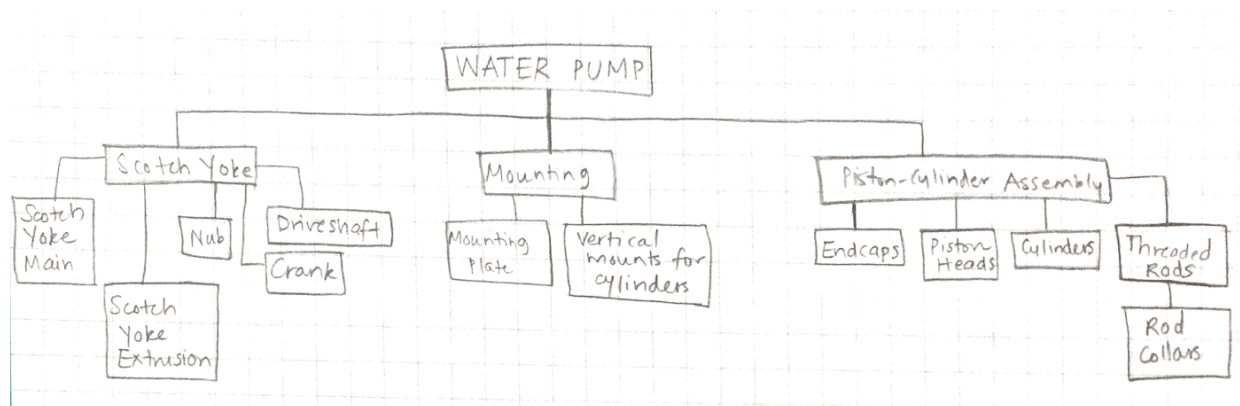 WATER PUMP
Scotch Yoke
Scotch
Yoke
Main
Scotch
Yoke
Extrusion
Nub
Driveshaft
Crank
Mounting
Mounting
Plate
Vertical
mounts for
cylinders
Piston-Cylinder Assembly
Endcaps
Piston
Heads
Cylinders
Threaded
Rods
Rod
Collars